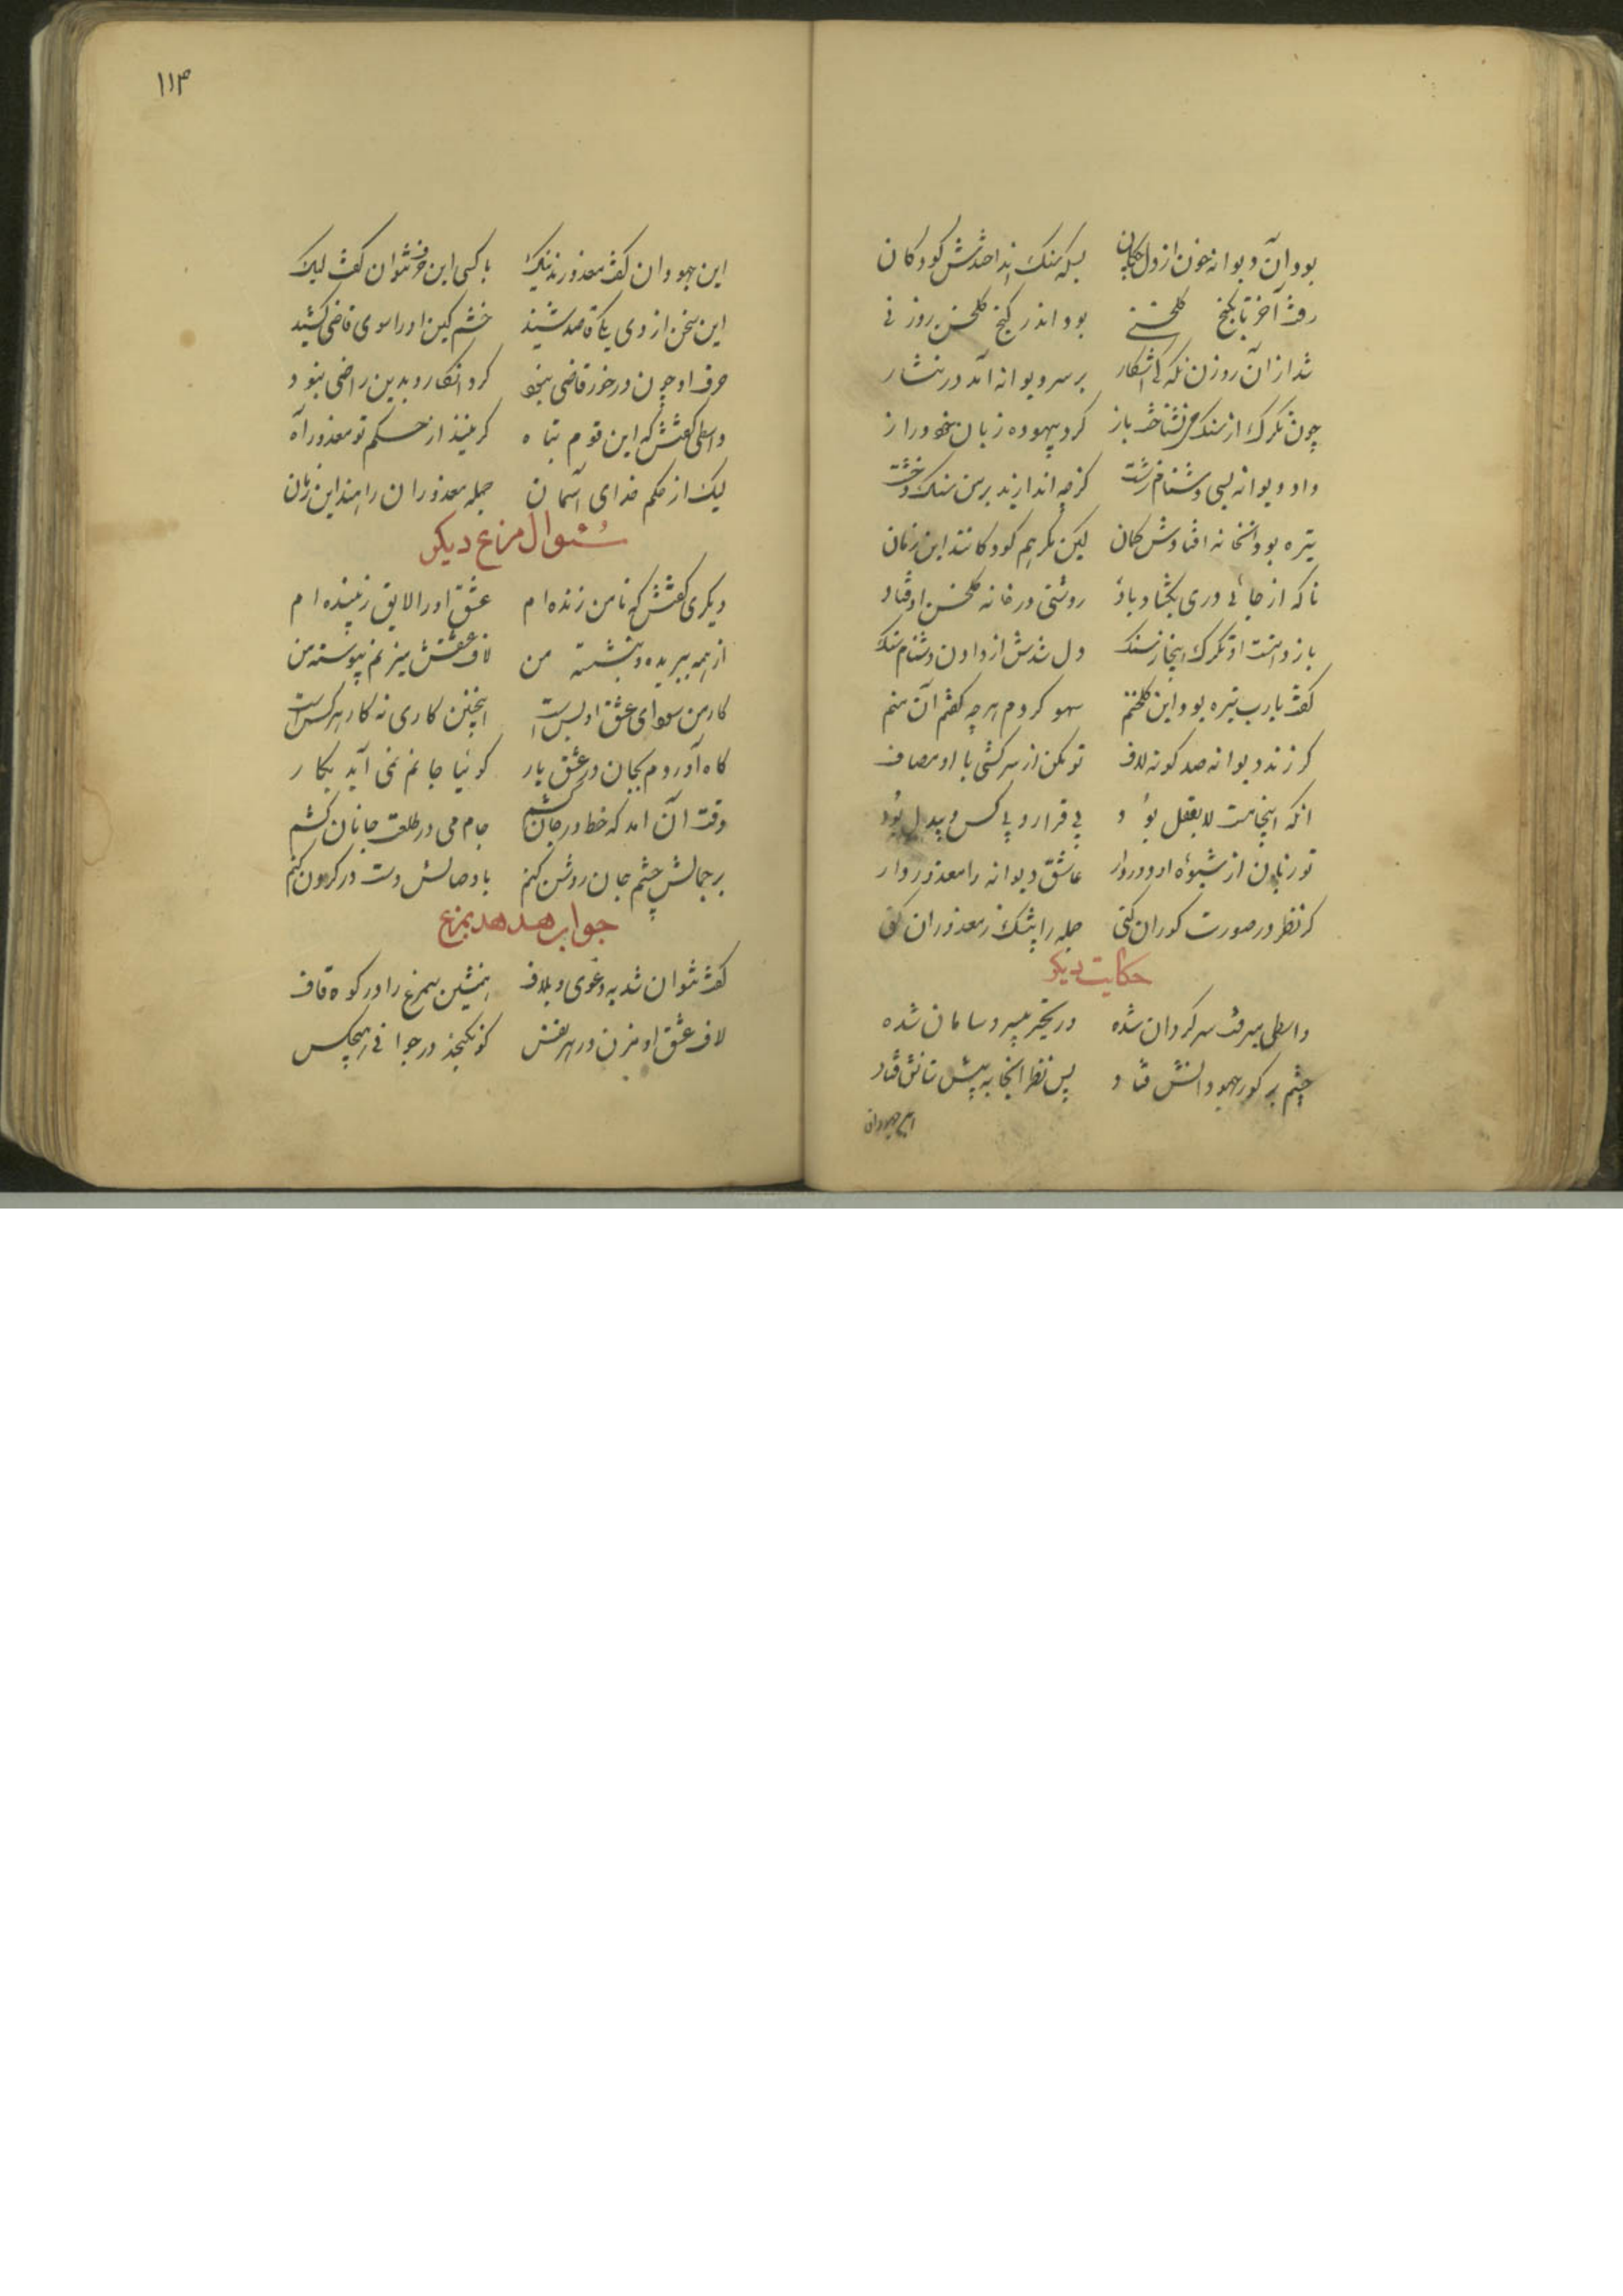 بود آن دیوانه خون از دل چکان بسکه سنک انداختندش کودکان
رفت آخر تا بکنج کلخنی بود اندر کنج کلخن روزنی
شد از آن روزن تکرکی آشکار بر سر دیوانه آمد در نثار
چون تکرک از سنک می نشناخت باز کرد بیهوده زبان خود دراز
داد دیوانه بسی دشنام زشت کز چه اندازند بر من سنک و خشت
تیره بود آنخانه افتادش کمان لیکن مکر هم کودکانند این زمان
تا که از جائی دری بکشاد باد روشنی در خانه کلخن اوفتاد
باز دانست او تکرک اینجا ز سنک دل شدش از دادن دشنام تنک
کفت یارب تیره بود این کلخنم سهو کردم هر چه کفتم آن منم
کر زند دیوانه صد کونه لاف تو مکن از سرکشی با او مصاف
انکه اینجا مست لایعقل بود بی قرار و بی کس و بیدل بود
تو زبان از شیوه او دور دار عاشق دیوانه را معذور دار
کر نظر در صورت کوران کنی جمله را بیشک ز معذوران کنی
حکایت دیکر
واسطی میرفت سرکردان شده در تحیر بیسر و سامان شده
چشم بر کور جهودانش فتاد پس نظر انجا به پیش شانش فتاد
این جهودان
۱۱۳
این جهودان کفت معذورند نیک با کسی این حرف نتوان کفت لیک
این سخن از وی یکی قاصد شنید خشم کین او را سوی قاضی کشید
حرف او چون در خور قاضی نبود کرد انکار و بدین راضی نبود
واسطی کفتش که این قوم تباه کر نیند از حکم تو معذور راه
لیک از حکم خدای آسمان جمله معذوران راهند این زمان
سئوال مرغ دیکر
دیکری کفتش که تا من زنده ام عشق او را لایق و زیبنده ام
از همه ببریده و بنشسته من لاف عشقش میزنم پیوسته من
کار من سودای عشق او بس است اینچنین کاری نه کار هر کس است
کاه آوردم بجان در عشق یار کوئیا جانم نمی آید بکار
وقت آن امد که خط در جان کشم جام می در طلعت جانان کشم
بر جمالش چشم جان روشن کنم با وصالش دست در کردن کنم
جواب هدهد بمرغ
کفت نتوان شد به دعوی و بلاف همنشین سیمرغ را در کوه قاف
لاف عشق او مزن در هر نفس کو نکنجد در جوال هیچکس